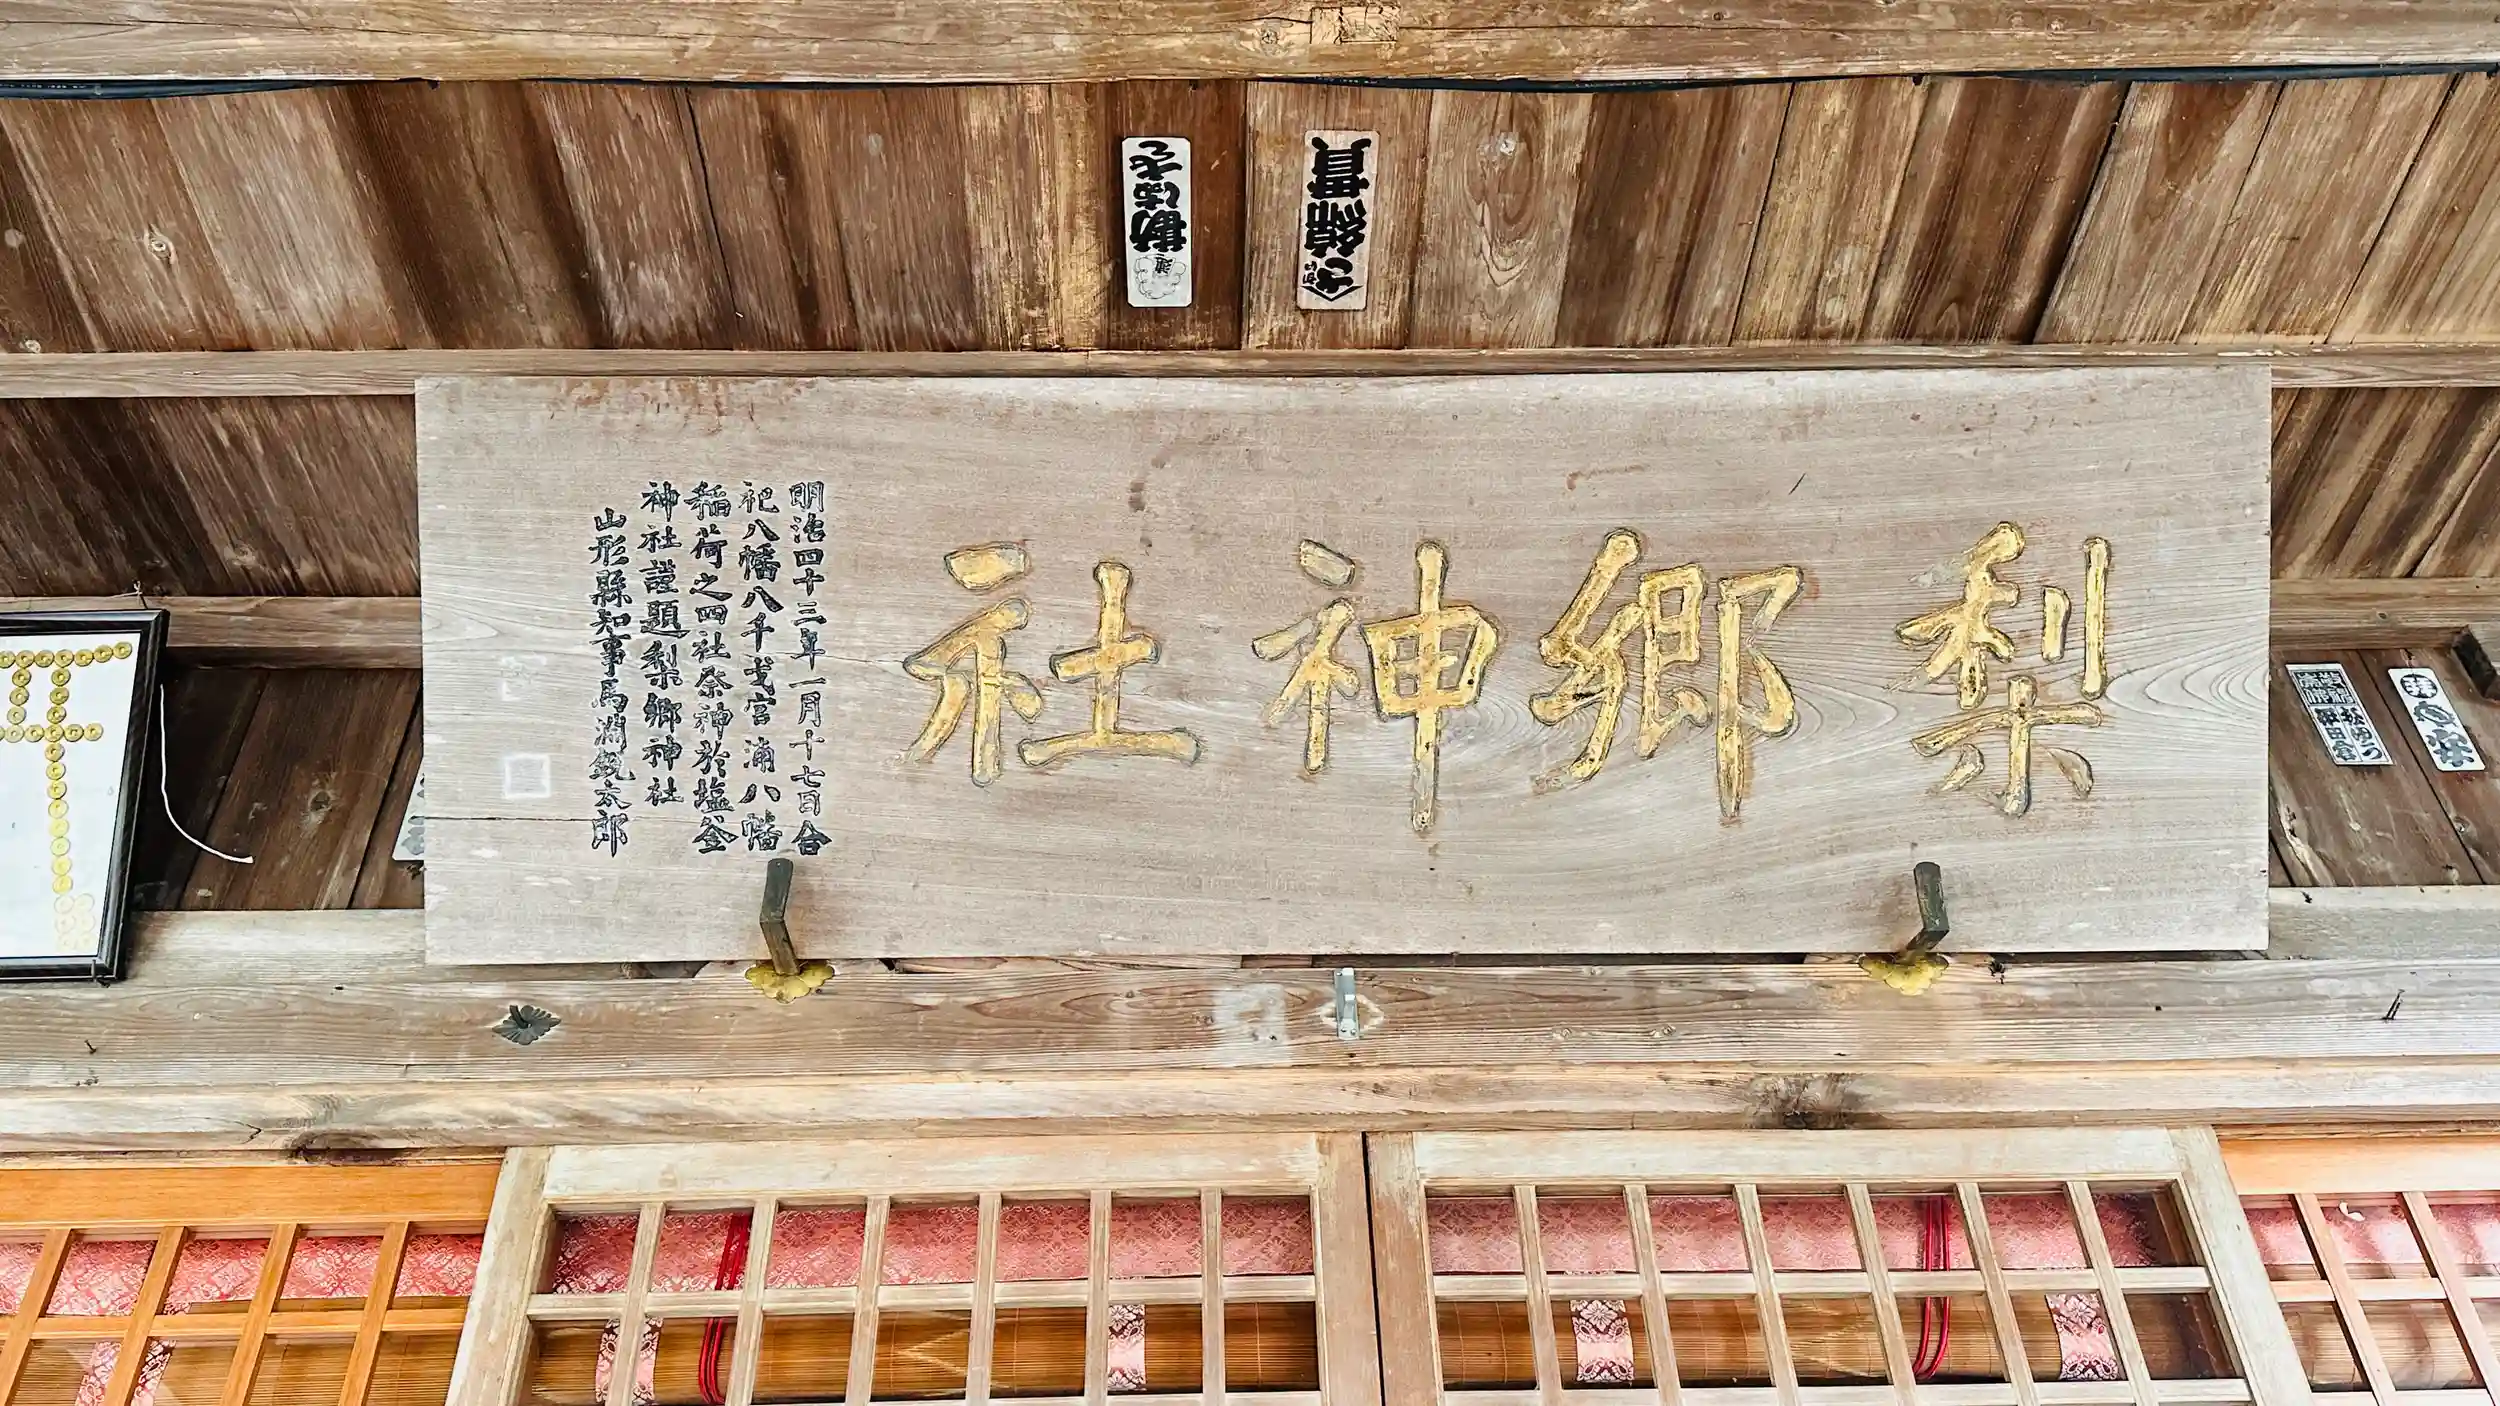 梨郷神社
明治四十三年一月十七日合
祀八幡八千戈宮浦八幡
稲荷之四社祭神於塩釜
神社謹題梨郷神社
山形縣知事馬淵鋭太郎